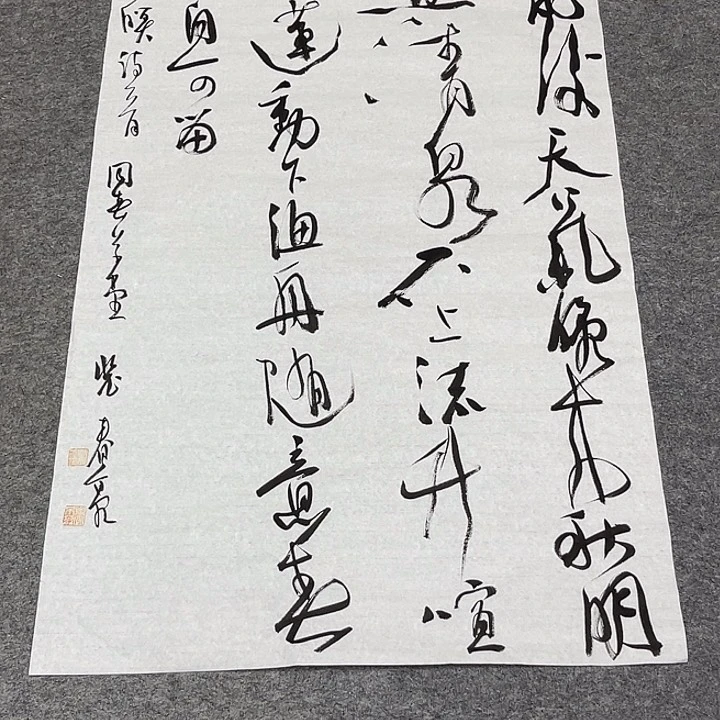 雨後天氣晚来秋明
照清泉石上流竹喧
蓮動下漁舟隨意春
自可留
暝詩一首